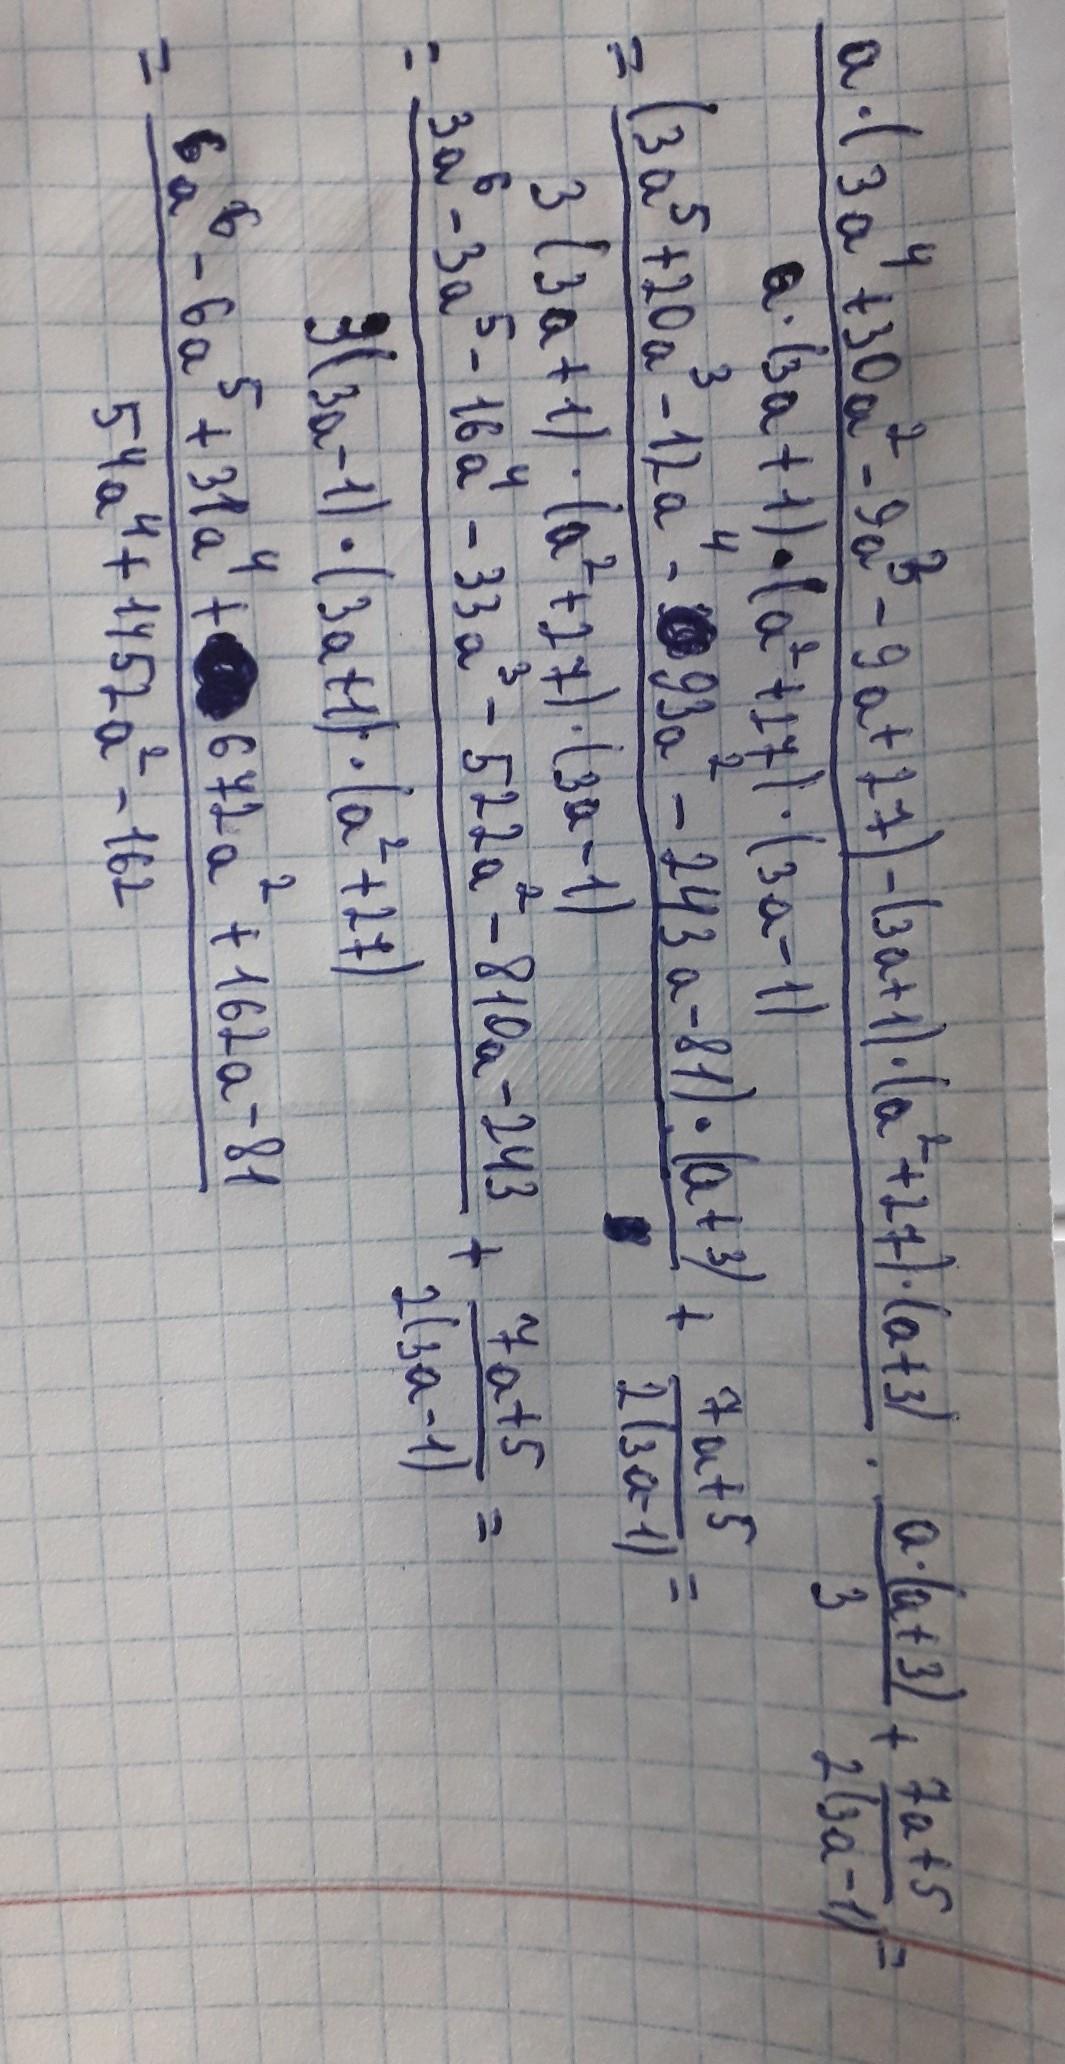 a·(3a⁴+30a²-9a³-9a+27)-(3a+1)·(a²+27)·(a+3) / a·(3a+1)·(a²+27)·(3a-1) · a·(a+3) / 3 + 7a+5 / 2(3a-1) =
= (3a⁵+20a³-12a⁴-93a²-243a-81)·(a+3) / 3(3a+1)·(a²+27)·(3a-1) + 7a+5 / 2(3a-1) =
= 3a⁶-3a⁵-16a⁴-33a³-522a²-810a-243 / 3(3a-1)·(3a+1)·(a²+27) + 7a+5 / 2(3a-1) =
= 6a⁶-6a⁵+31a⁴+672a²+162a-81 / 54a⁴+1452a²-162